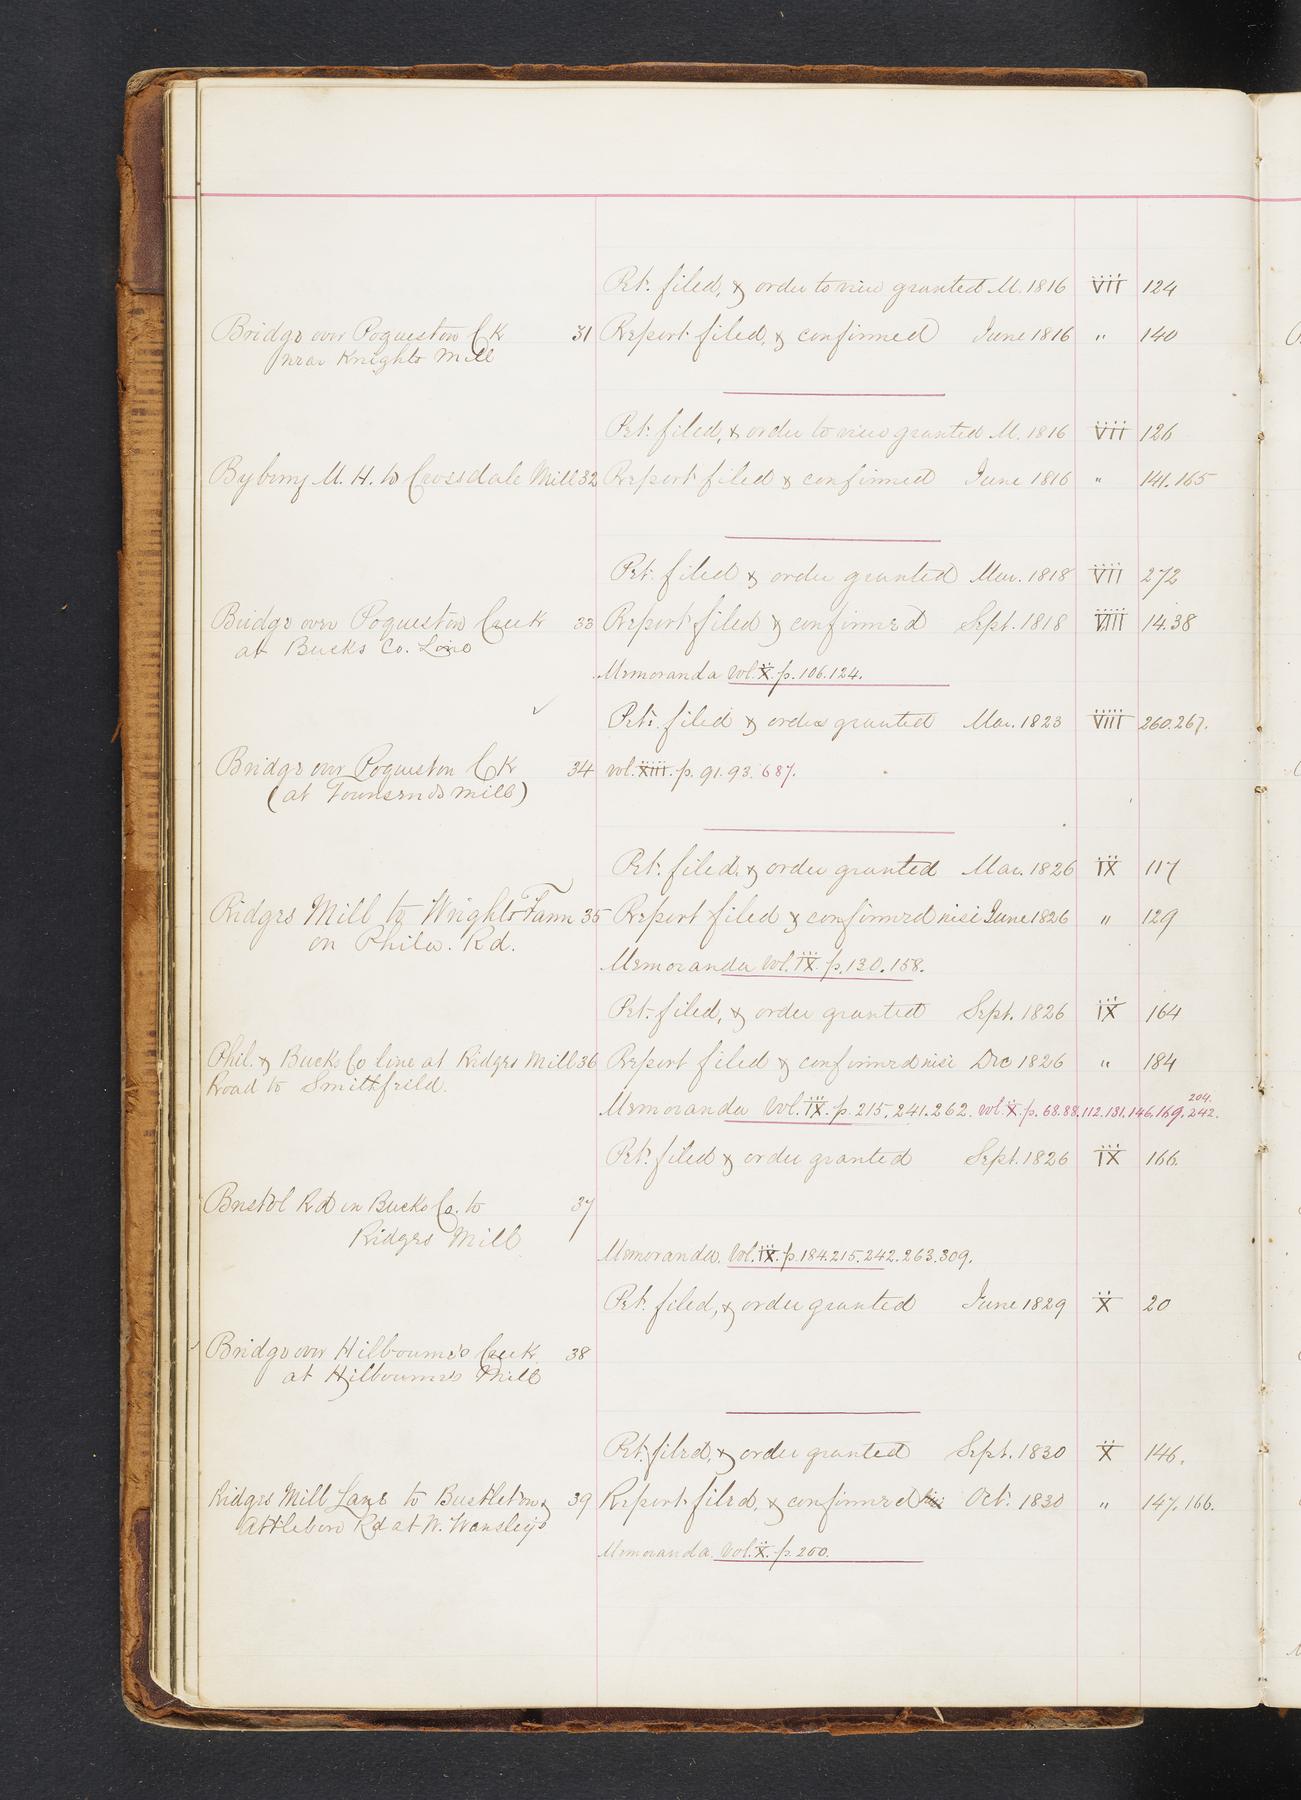 Pet. filed, & order to view granted M. 1816 VII 124
Bridge over Poqueston Ck 31 Report filed, & confirmed June 1816 " 140
near Knights Mill
Pet. filed, & order to view granted M. 1816 VII 126
Byberry M. H. to Crossdale Mill 32 Report filed & confirmed June 1816 " 141.165
Pet. filed & order granted Mar. 1818 VII 272
Bridge over Poqueston Creek 33 Report filed & confirmed Sept. 1818 VIII 14.38
at Bucks Co. Line
Memoranda Vol. X. p. 106.124.
Pet. filed & order granted Mar. 1823 VIII 260.267.
Bridge over Poqueston Ck 34 vol. XIII. p. 91.93. 687.
(at Townsends Mill)
Pet. filed, & order granted Mar. 1826 IX 117
Ridges Mill to Wrights Farm 35 Report filed & confirmed nisi June 1826 " 129
on Phila. Rd.
Memoranda Vol. IX. p. 130.158.
Pet. filed, & order granted Sept. 1826 IX 164
Phil. & Bucks Co line at Ridges Mill 36 Report filed & confirmed nisi Dec 1826 " 184
Road to Smithfield.
Memoranda Vol. IX. p. 215, 241.262. Vol. X. p. 68.88.112.131.146.169.204.242.
Pet. filed & order granted Sept. 1826 IX 166.
Bristol Rd in Bucks Co. to 37
Ridges Mill
Memoranda. Vol. IX. p. 184.215.242.263.309.
Pet. filed, & order granted June 1829 X 20
Bridge over Hilbourne's Creek 38
at Hilbourne's Mill
Pet. filed, & order granted Sept. 1830 X 146.
Ridges Mill Lane to Bustleton & 39 Report filed, & confirmed Oct. 1830 " 147.166.
Attleboro Rd at W. Wansley's
Memoranda. Vol. X. p. 200.